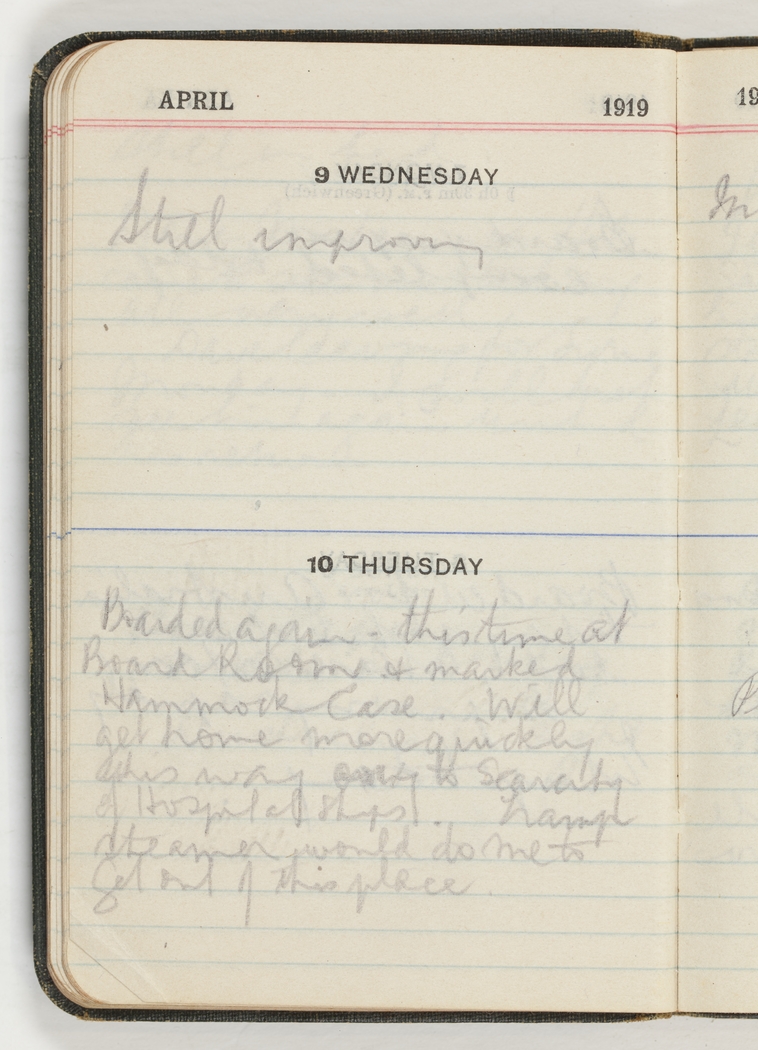 APRIL 1919
9 WEDNESDAY
Still improving
10 THURSDAY
Boarded again - this time at
Board Room & marked
Hammock Case. Will
get home more quickly
this way owing to Scarcity
of Hospital Ships. Tramp
steamer would do me to
get out of this place.
19
In